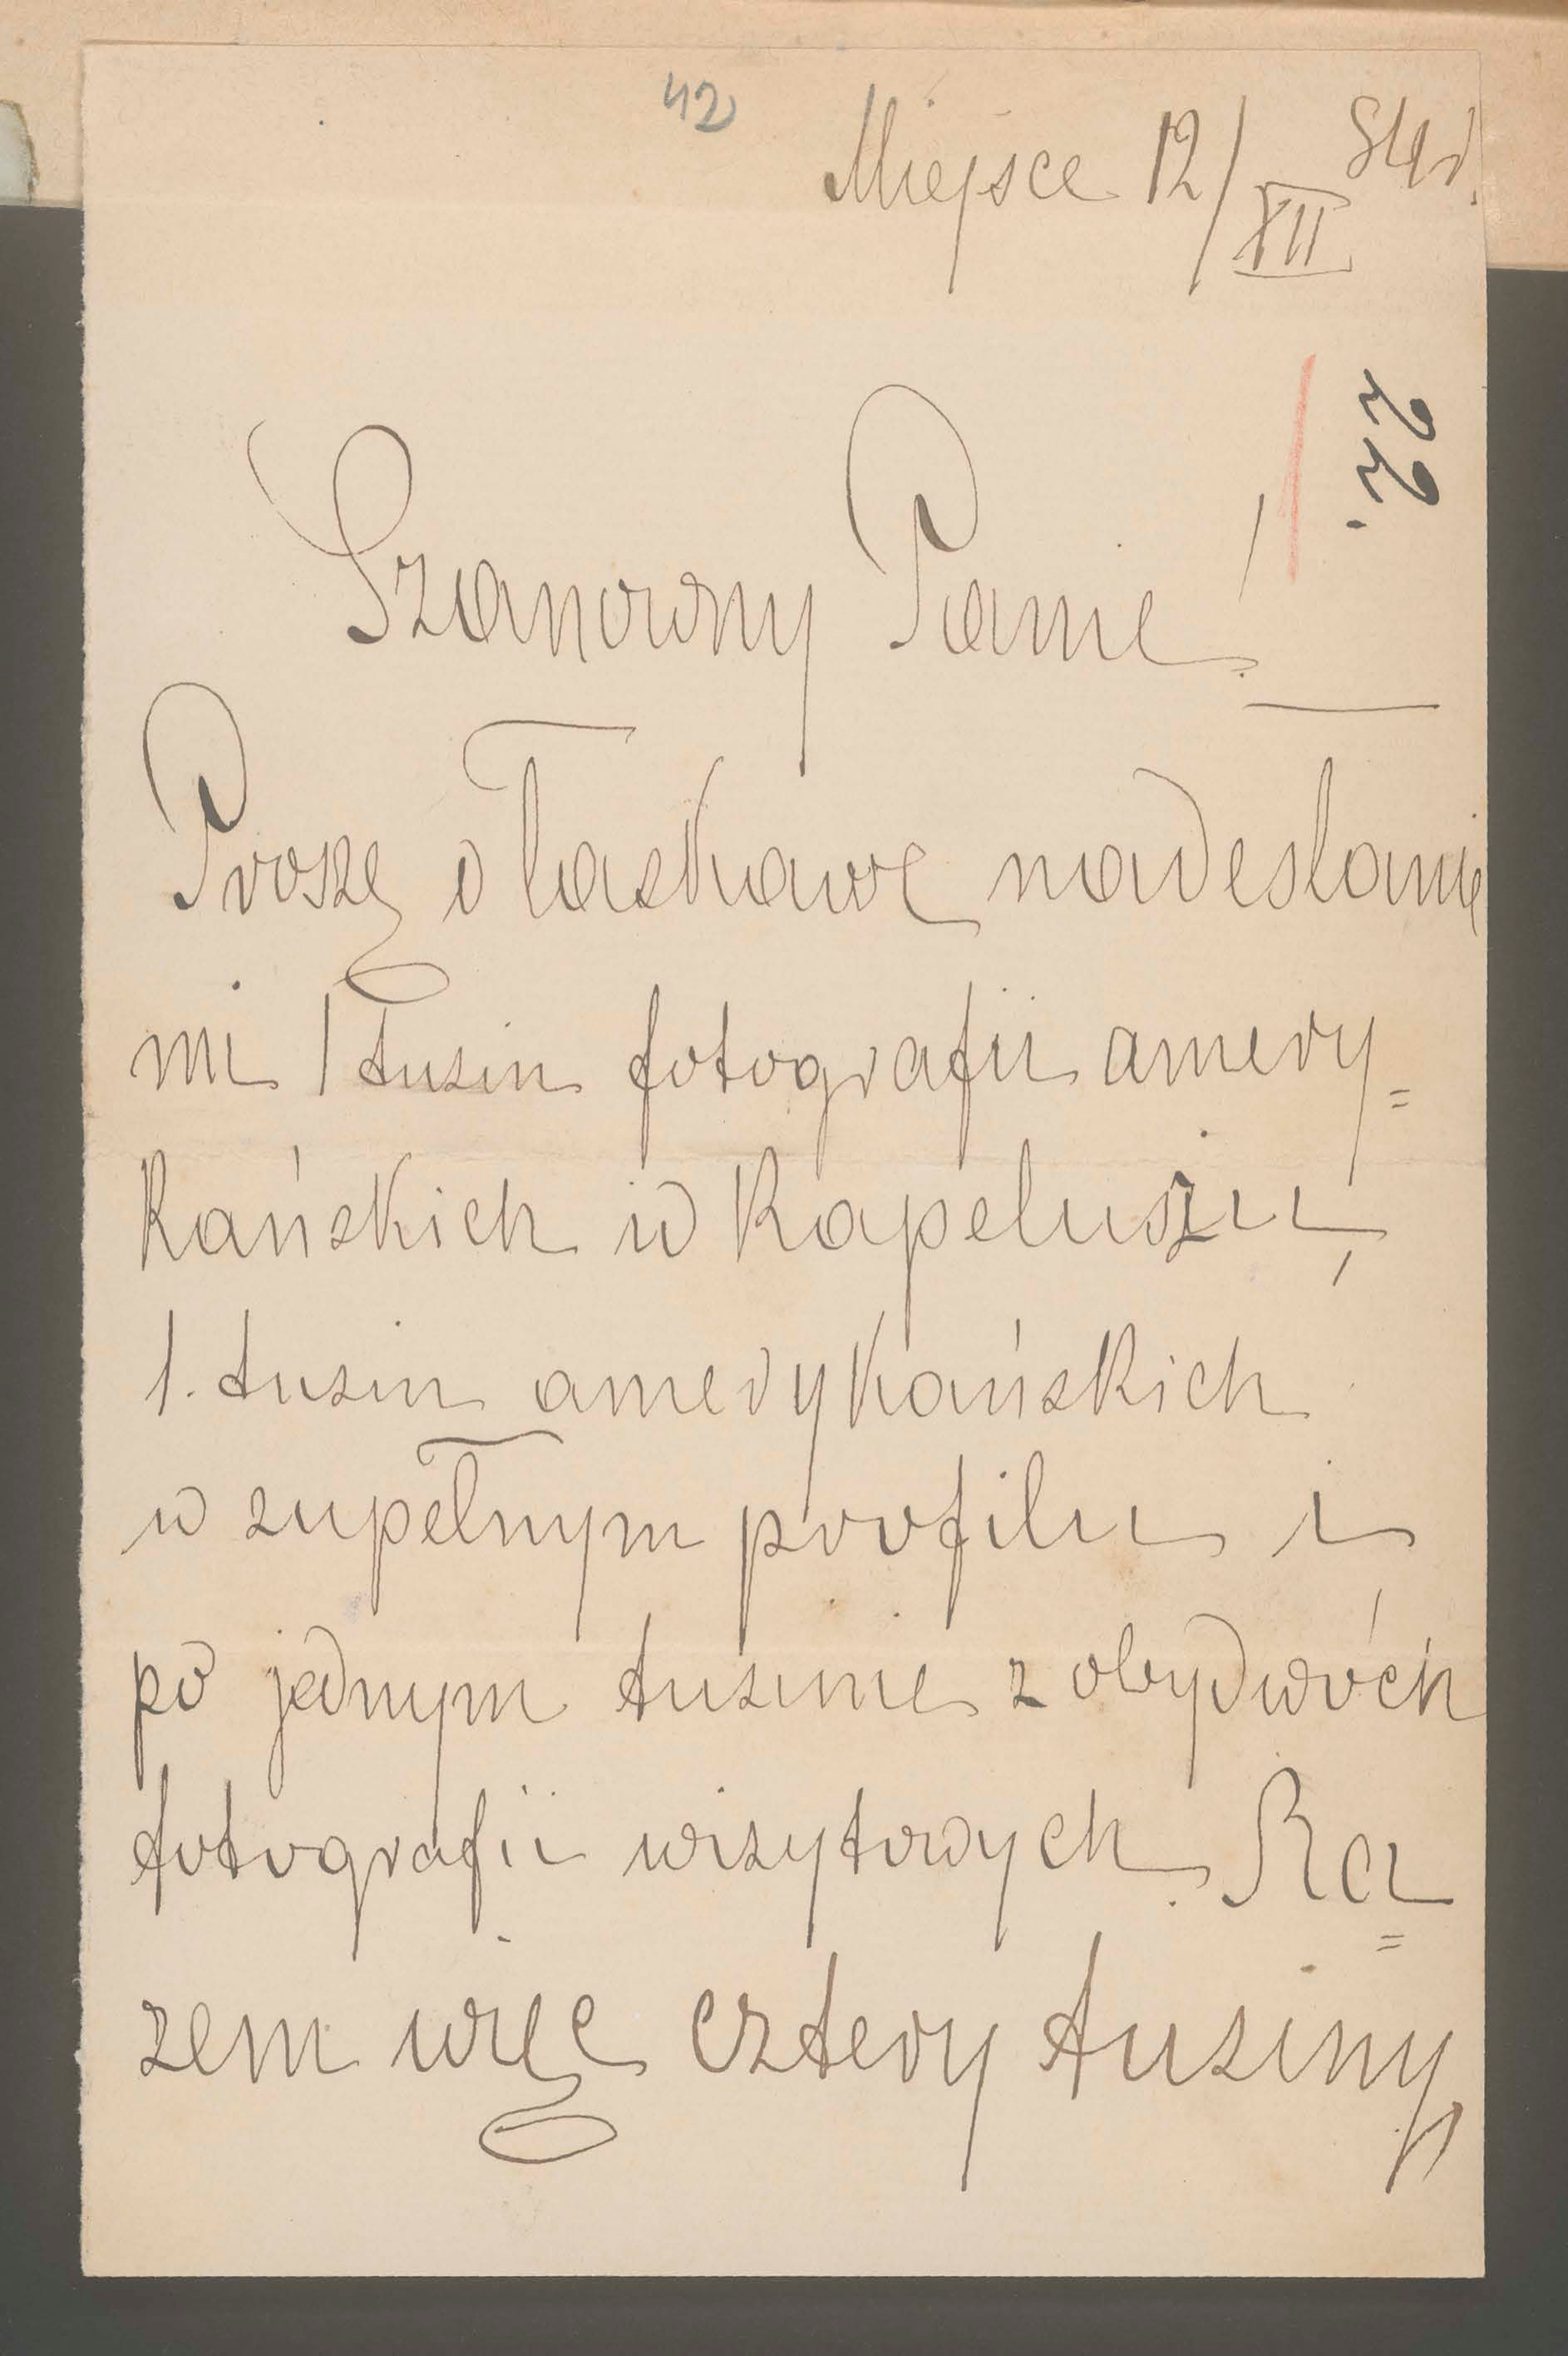 42
Miejsce 12/XII 84 r.
22.
Szanowny Panie!
Proszę o łaskawe nadesłanie
mi 1 tuzin fotografii amery=
kańskich w kapeluszu,
1. tuzin amerykańskich
w zupełnym profilu i
po jednym tuzinie z obydwóch
fotografii wizytowych. Ra=
zem więc cztery tuziny